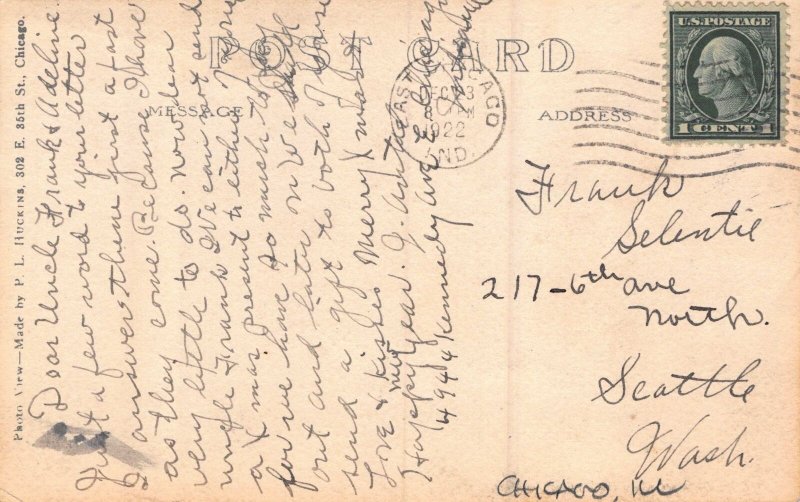 POST CARD
MESSAGE
ADDRESS
Photo View—Made by P. L. Huckins, 302 E. 35th St., Chicago.
U.S. POSTAGE
1 CENT 1
EAST CHICAGO
DEC 3
PM
1922
IND.
Dear Uncle Frank & Adeline
Just a few word to your letter
I answers thine first a fast
as they come. Because I have
very little to do. now dear
uncle Frank We can not send
a X mas present to either of
for we have to much to
out and later on We shall
send a gift to both of
Love & kisses Merry X mas &
Happy new year. J.
4944 Kennedy ave E. Chicago
Frank
Selentie
217-6th ave
North.
Seattle
Wash.
CHICAGO, Ill